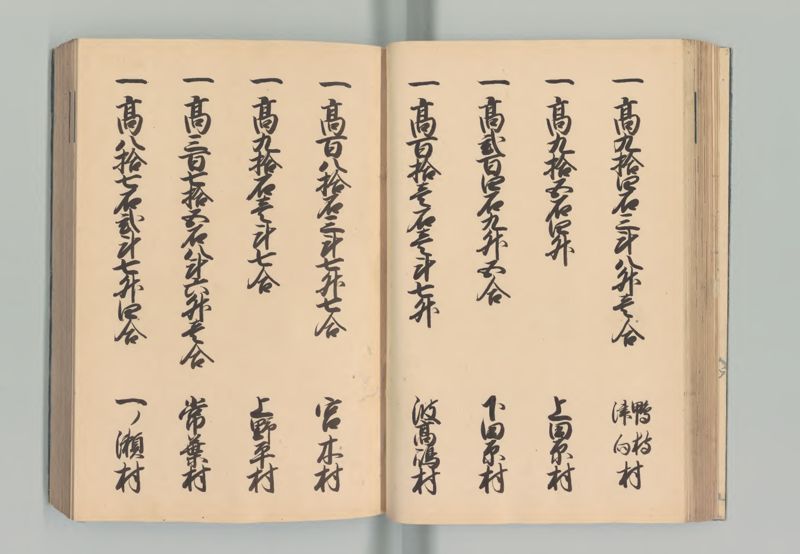 一 高九拾四石三斗八升壱合 鴨枝 津向 村
一 高九拾五石四升 上田原村
一 高弐百四石九升五合 下田原村
一 高百拾壱石壱斗七升 波高嶋村
一 高百八拾石三斗七升七合 宮木村
一 高九拾石壱斗七合 上野平村
一 高三百七拾五石八斗六升壱合 常葉村
一 高八拾七石弐斗七升四合 一ノ瀬村